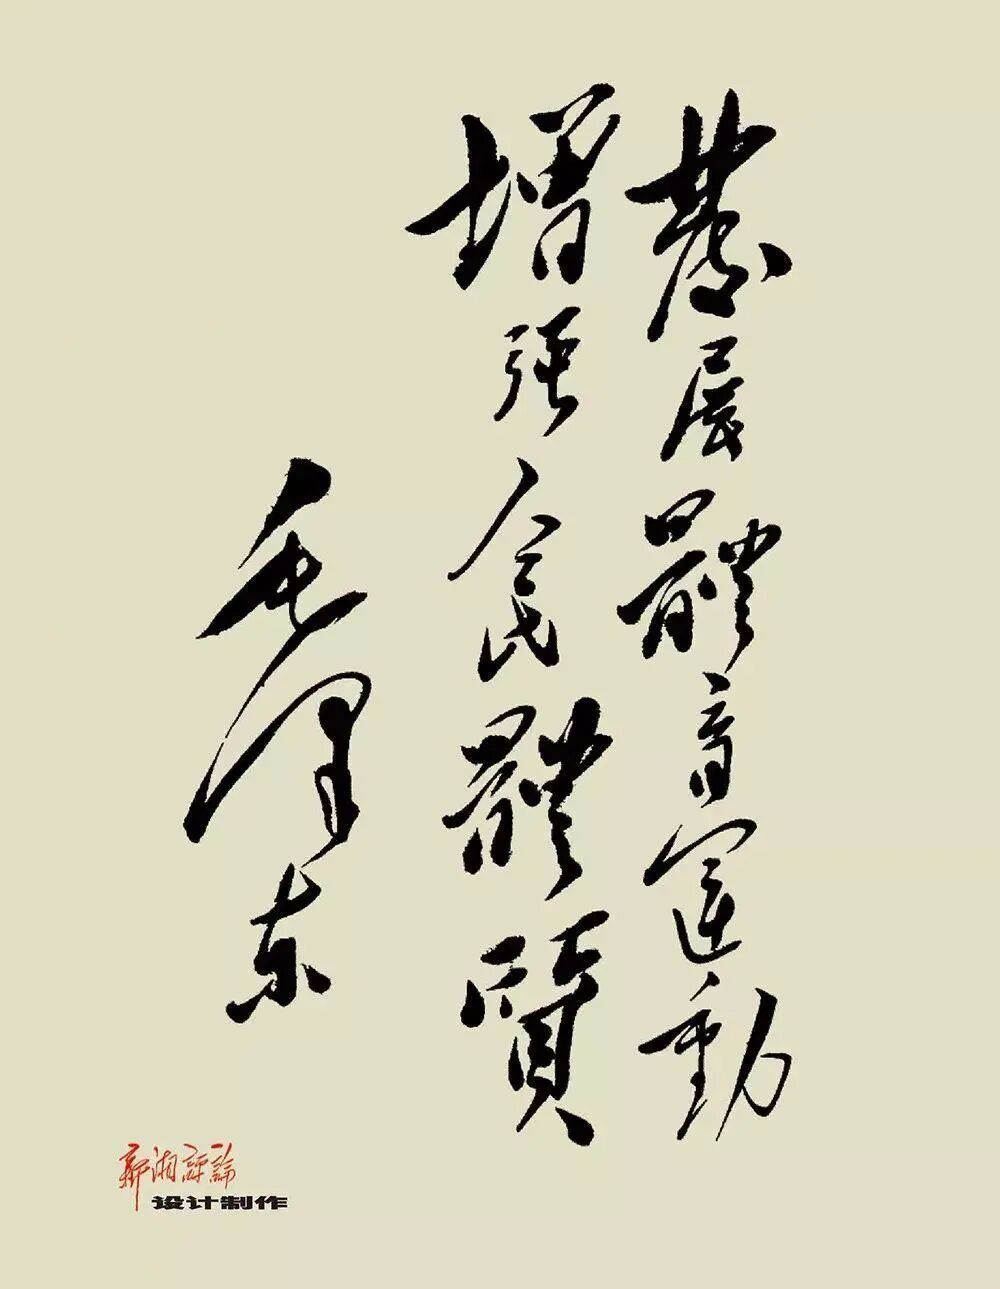 發展體育運動
增强人民體質
毛泽东
新湘評論
设计制作